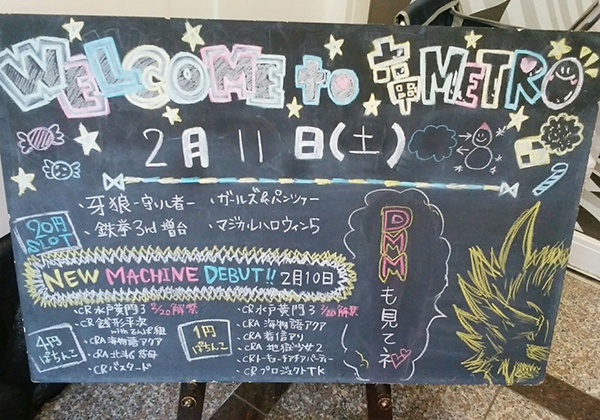 WELCOME to 竜METRO
2月11日(土)
・牙狼-守りし者-
・ガールズ&パンツァー
・鉄拳3rd増台
・マジカルハロウィン5
20円
SLOT
NEW MACHINE DEBUT!! 2月10日
4円
ぱちんこ
・CR水戸黄門3 2/20解禁
・CR銭形平次
withでんぱ組
・CRA海物語アクア
・CRA北斗6慈母
・CRバスタード
1円
ぱちんこ
・CR水戸黄門3 2/20解禁
・CRA海物語アクア
・CRA着信アリ
・CRA地獄少女2
・CRプロジェクトTK
DMM
も見てネ